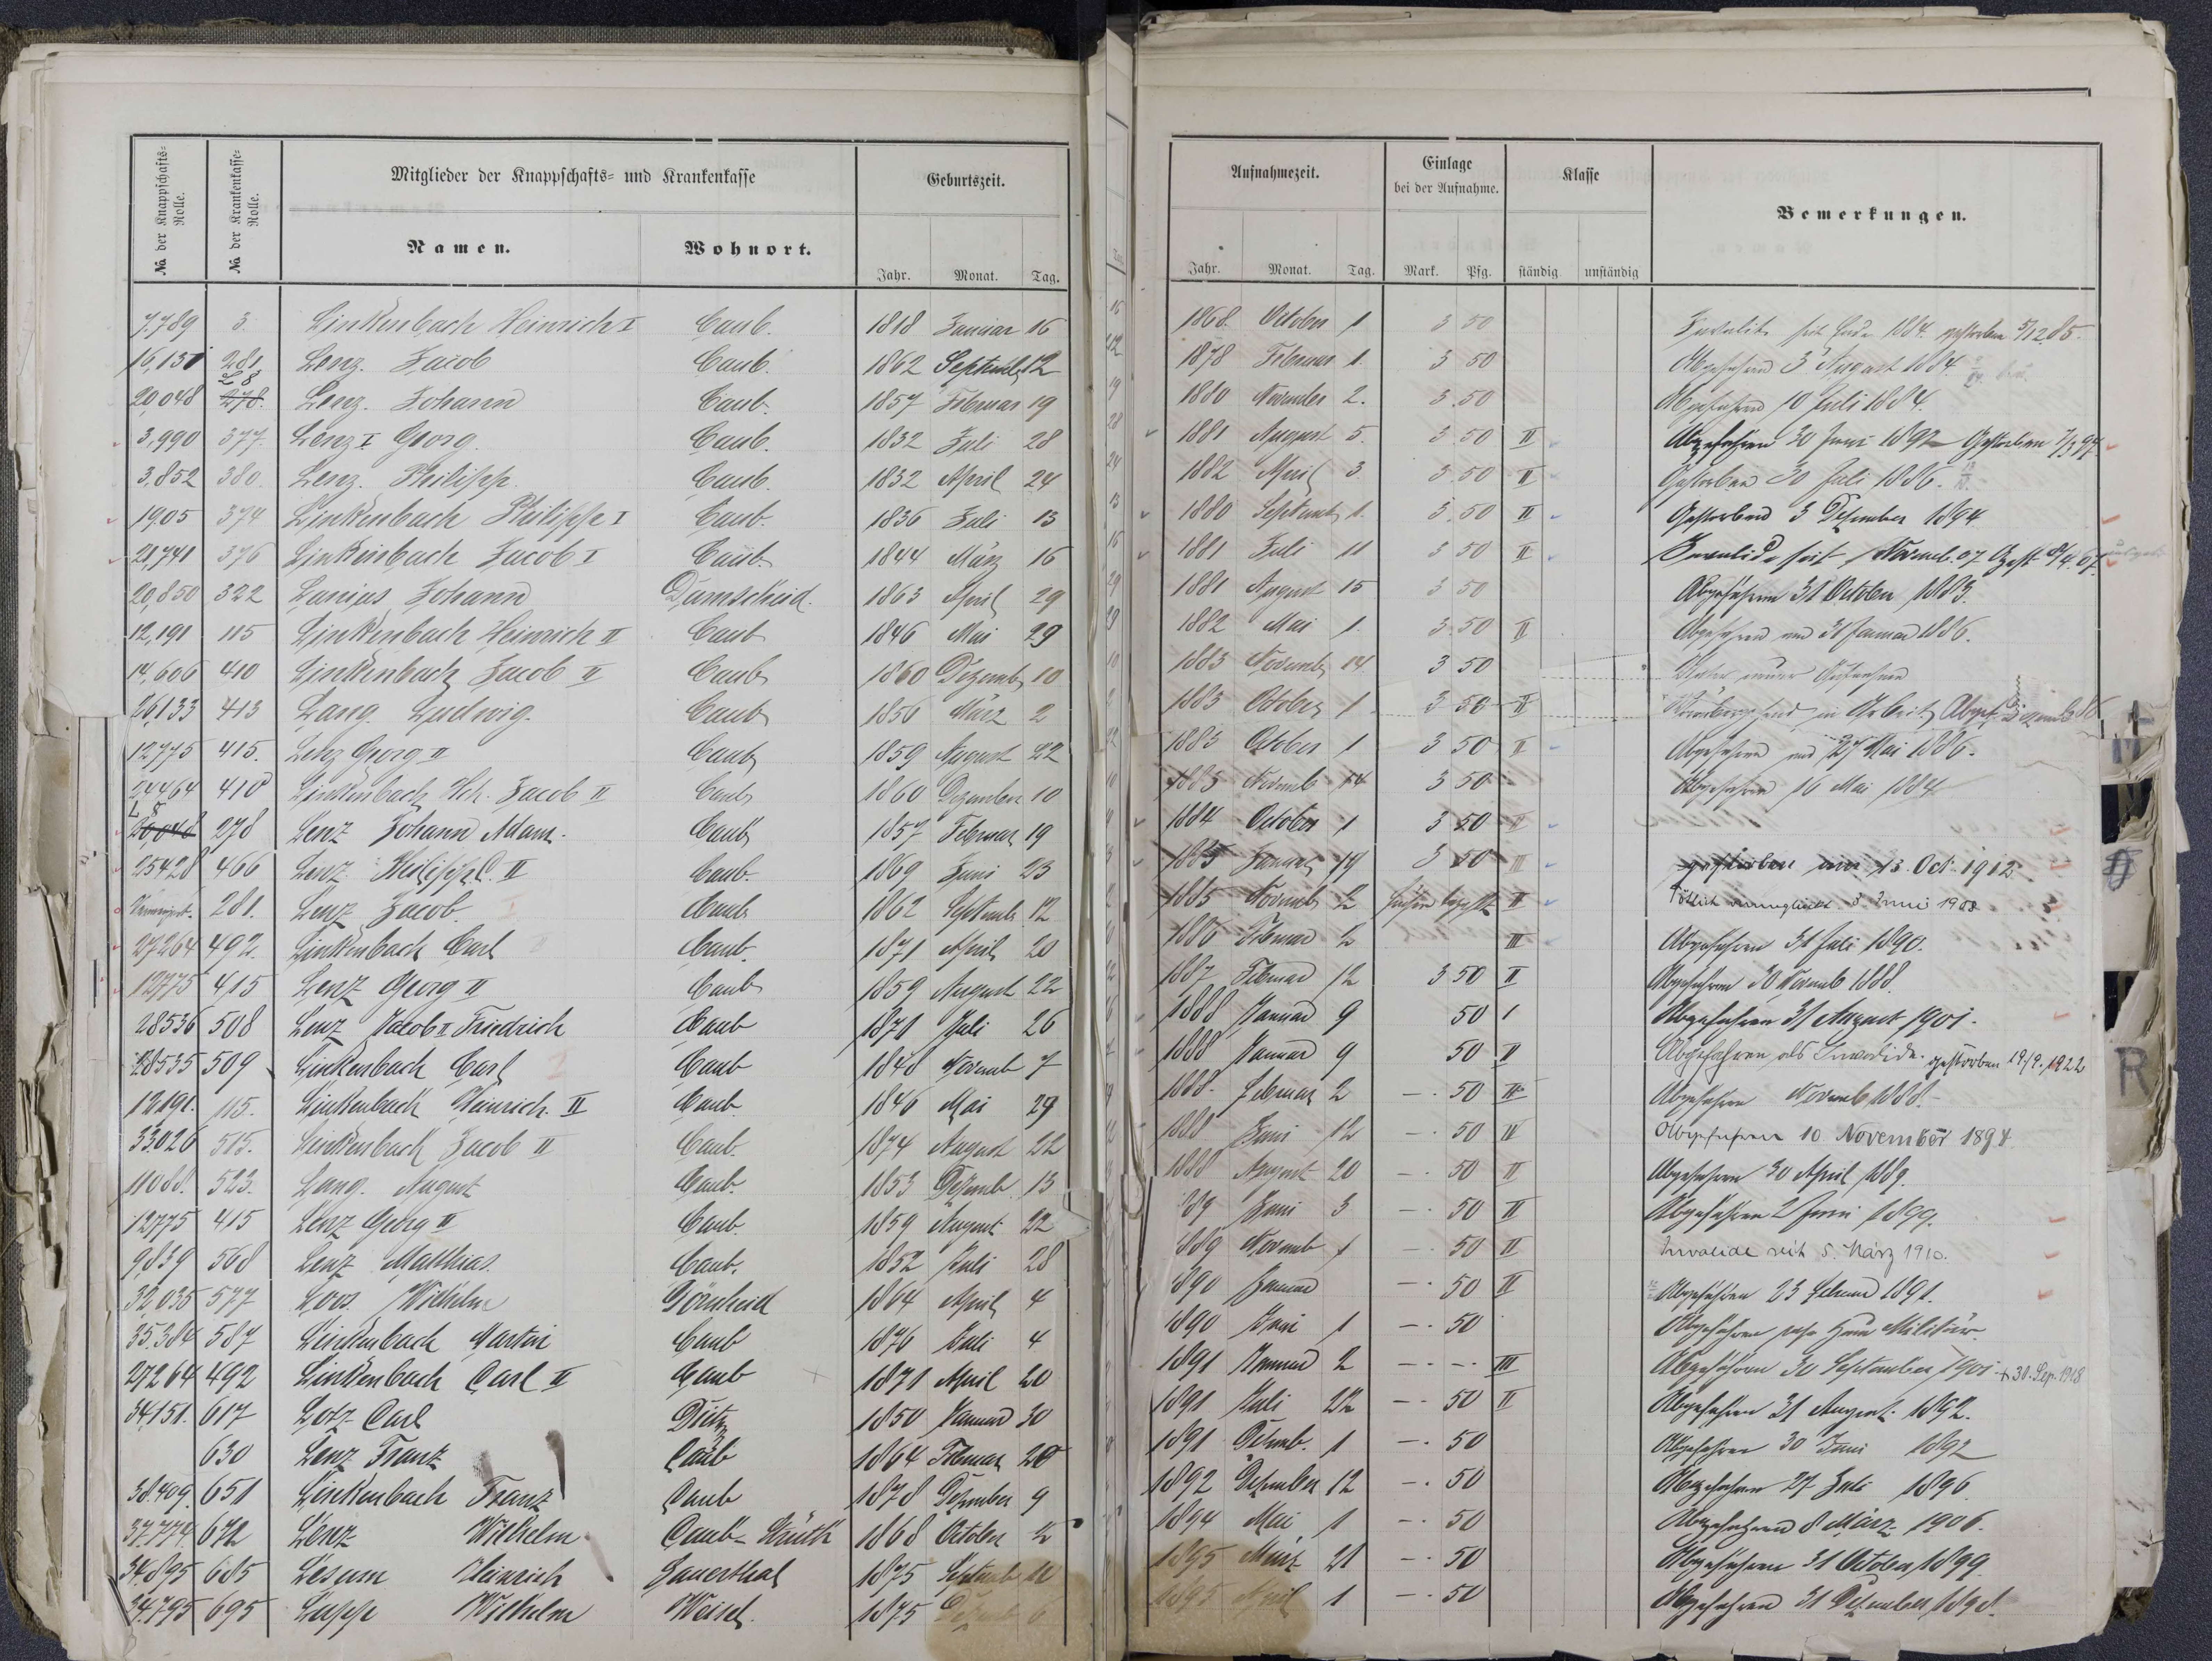 No. der Knappschafts-Rolle. No. der Krankenkasse-Rolle. Mitglieder der Knappschafts- und Krankenkasse Geburtszeit.
Namen. Wohnort. Jahr. Monat. Tag.
7.789 3. Linkenbach Heinrich I Caub. 1818 Januar 16
16,131 281 Lenz. Jacob Caub. 1862 Septemb 12
20,048 278. Lenz. Johann Caub. 1857 Februar 19
3,990 377. Lenz I Georg. Caub. 1832 Juli 28
3,852 380. Lenz. Philipp. Caub. 1832 April 24
19,05 374 Linkenbach Philipp I Caub. 1836 Juli 13
21,741 376 Linkenbach Jacob I Caub. 1844 März 16
20,850 322 Lanius Johann Damscheid. 1863 April 29
12,191 115 Linkenbach Heinrich II Caub 1846 Mai 29
14,606 410 Linkenbach Jacob II Caub 1860 Dezemb 10
26,133 413 Lang. Ludwig. Caub 1856 März 2
12775 415. Lenz Georg II Caub 1859 August 22
24464 410 Linkenbach Hch. Jacob II Caub 1860 Dezember 10
20,048 278 Lenz Johann Adam. Caub 1857 Februar 19
25428 466 Lenz Philipp C. II Caub. 1869 Juni 23
281. Lenz Jacob. I Caub 1862 Septemb 12
27264 492. Linkenbach Carl Caub. 1871 April 20
12775 415 Lenz Georg II Caub 1859 August 22
28536 508 Lenz Jacob II Friedrich Caub 1871 Juli 26
28535 509 Linkenbach Carl Caub 1848 Novemb 7
12191. 115. Linkenbach Heinrich. II Caub. 1846 Mai 29
33026 515. Linkenbach Jacob II Caub. 1874 August 22
11088. 523. Lang. August Caub. 1853 Dezemb. 13
12775 415 Lenz Georg II Caub. 1859 August 22
9,839 568 Lenz Matthias. Caub. 1852 Juli 28
32,035 577 Loos. Wilhelm Dörscheid 1864 April 4
35.384 587 Linkenbach Martin Caub 1876 Juli 4
27264 492 Linkenbach Carl II Caub 1871 April 20
34,151. 617 Lotz Carl Dietz 1850 Januar 30
630 Lenz Franz Caub 1864 Februar 20
38.409. 651 Linkenbach Franz Caub 1878 Dezember 9
37.774. 672 Lenz Wilhelm. Caub- 1868 October 2
34.895 685 Lesum Heinrich Sauerthal 1875 Septemb 12
34.795 695 Lapp Wilhelm Weisel. 1875 Dezemb 6
Aufnahmezeit. Einlage bei der Aufnahme. Klasse Bemerkungen.
Jahr. Monat. Tag. Mark. Pfg. ständig unständig
1868. October 1 3 50 Invalide seit Ende 1884. gestorben 5/12 85.
1878 Februar 1. 3 50 Abgefahren 3 August 1884.
1880 November 2. 3.50 Abgefahren 10 Juli 1884.
1881 August 5. 3 50 II Abgefahren 30 Juni 1892 Gestorben 7/3 97.
1882 April 3. 3.50 II Gestorben 30 Juli 1886.
1880 Septemb 1. 3.50 II Gestorben 3 Dezember 1894
1881 Juli 11 3 50 II Invalide seit Novemb. 07 Gest
1881 August 15 3 50 Abgefahren 31 October 1883.
1882 Mai 1. 3.50 II Abgefahren am 31 Januar 1886.
1883 Novemb 14. 3 50
1883 October 1 3 50 II in Arbeit Abgef.
1883 October 1 3 50 II Abgefahren am 27 Mai 1886.
1883 Novemb 14 3 50 Abgefahren 16 Mai 1884
1884 October 1 3 50 II
1885 Januar 19 3 50 III gestorben am 13. Oct. 1912
1885 Novemb 2 II Tötlich verunglückt 8. Juni 1908
1886 Februar 2 III Abgefahren 31 Juli 1890.
1887 Februar 12 3 50 II Abgefahren 30 Novemb 1888.
1888 Januar 9 50 I Abgefahren 31 August 1901.
1888 Januar 9 50 II Abgefahren als Invalide. gestorben 19/9. 1922
1888. Februar 2 - . 50 II Abgefahren Novemb 1888.
1888 Juni 12 - . 50 II Abgefahren 10 November 1894
1888 August 20 - . 50 II Abgefahren 30 April 1889.
89 Juni 3 - . 50 II Abgefahren 2 Juni 1899.
1889 Novemb 1 - . 50 II Invalide seit 5. März 1910.
1890 Januar - . 50 II Abgefahren 23 Februar 1891.
1890 Juni 1 - . 50 Abgefahren zum Militär.
1891 Januar 2 - . - . III Abgefahren 30 September 1901 + 30. Sep. 1918
1891 Juli 22 - . 50 II Abgefahren 31 August 1892.
1891 Dezemb. 1 - . 50 Abgefahren 30 Juni 1892
1892 Dezember 12 - . 50 Abgefahren 27 Juli 1896.
1894 Mai 1 - . 50 Abgefahren 8 März 1906.
1895 März 21 - . 50 Abgefahren 31 October 1899.
1895 April 1 - . 50 Abgefahren 31 Dezember 1898.
R